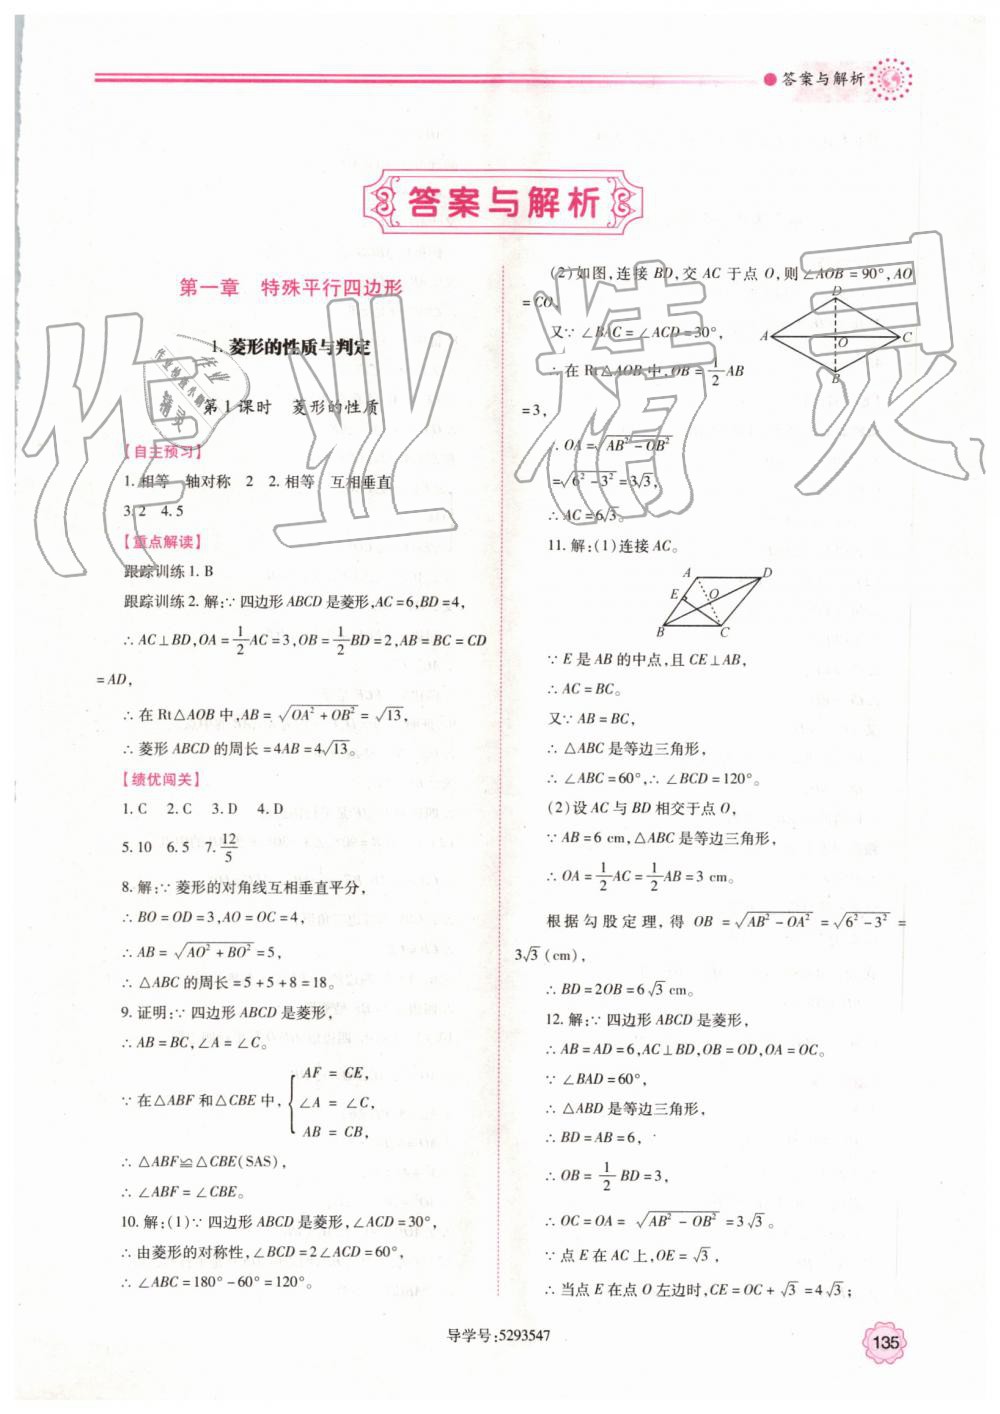 答案与解析
答案与解析
第一章 特殊平行四边形
1. 菱形的性质与判定
第1课时 菱形的性质
【自主预习】
1. 相等 轴对称 2 2. 相等 互相垂直
3. 2 4. 5
【重点解读】
跟踪训练 1. B
跟踪训练 2. 解:∵ 四边形 ABCD 是菱形,AC=6,BD=4,
∴ AC⊥BD,OA=1/2AC=3,OB=1/2BD=2,AB=BC=CD
=AD,
∴ 在 Rt△AOB 中,AB=√(OA²+OB²)=√13,
∴ 菱形 ABCD 的周长=4AB=4√13。
【绩优闯关】
1. C 2. C 3. D 4. D
5. 10 6. 5 7. 12/5
8. 解:∵ 菱形的对角线互相垂直平分,
∴ BO=OD=3,AO=OC=4,
∴ AB=√(AO²+BO²)=5,
∴ △ABC 的周长=5+5+8=18。
9. 证明:∵ 四边形 ABCD 是菱形,
∴ AB=BC,∠A=∠C。
∵ 在△ABF 和△CBE 中, { AF = CE,
∠A = ∠C,
AB = CB,
∴ △ABF≌△CBE(SAS),
∴ ∠ABF=∠CBE。
10. 解:(1)∵ 四边形 ABCD 是菱形,∠ACD=30°,
∴ 由菱形的对称性,∠BCD=2∠ACD=60°,
∴ ∠ABC=180°-60°=120°。
(2)如图,连接 BD,交 AC 于点 O,则∠AOB=90°,AO
=CO。
又∵ ∠BAC=∠ACD=30°,
∴ 在 Rt△AOB 中,OB=1/2AB
=3,
∴ OA=√(AB²-OB²)
=√(6²-3²)=3√3,
∴ AC=6√3。
D
A
O
C
B
11. 解:(1)连接 AC。
A
D
E
O
B
C
∵ E 是 AB 的中点,且 CE⊥AB,
∴ AC=BC。
又∵ AB=BC,
∴ △ABC 是等边三角形,
∴ ∠ABC=60°,∴ ∠BCD=120°。
(2)设 AC 与 BD 相交于点 O,
∵ AB=6 cm,△ABC 是等边三角形,
∴ OA=1/2AC=1/2AB=3 cm。
根据勾股定理,得 OB=√(AB²-OA²)=√(6²-3²)=
3√3(cm),
∴ BD=2OB=6√3 cm。
12. 解:∵ 四边形 ABCD 是菱形,
∴ AB=AD=6,AC⊥BD,OB=OD,OA=OC。
∵ ∠BAD=60°,
∴ △ABD 是等边三角形,
∴ BD=AB=6,
∴ OB=1/2BD=3,
∴ OC=OA=√(AB²-OB²)=3√3。
∵ 点 E 在 AC 上,OE=√3,
∴ 当点 E 在点 O 左边时,CE=OC+√3=4√3;
导学号:5293547
135
作业精灵